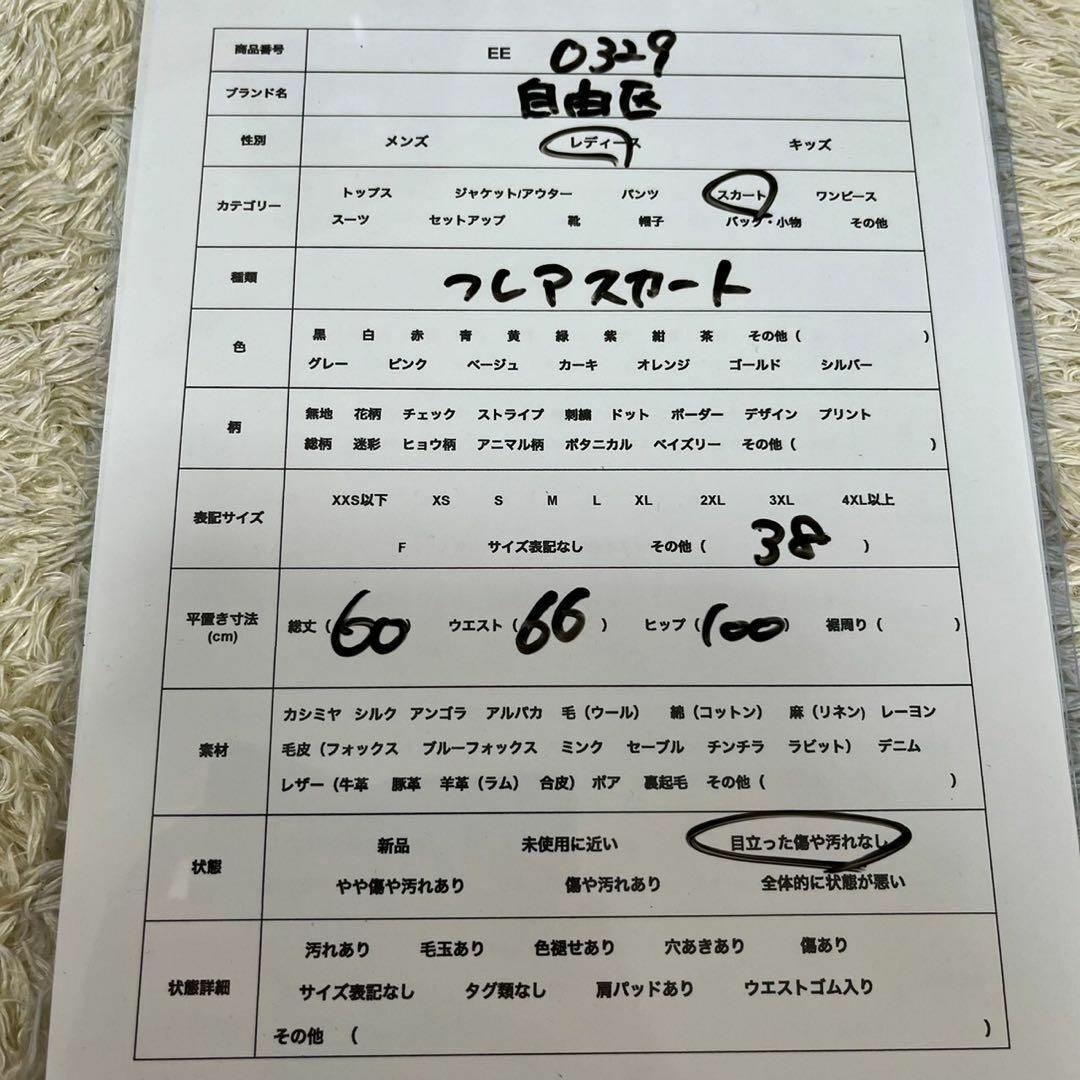 商品番号 EE 0329
ブランド名 自由区
性別 メンズ レディース キッズ
カテゴリー トップス ジャケット/アウター パンツ スカート ワンピース
スーツ セットアップ 靴 帽子 バッグ・小物 その他
種類 フレアスカート
色 黒 白 赤 青 黄 緑 紫 紺 茶 その他( )
グレー ピンク ベージュ カーキ オレンジ ゴールド シルバー
柄 無地 花柄 チェック ストライプ 刺繍 ドット ボーダー デザイン プリント
総柄 迷彩 ヒョウ柄 アニマル柄 ボタニカル ペイズリー その他( )
表記サイズ XXS以下 XS S M L XL 2XL 3XL 4XL以上
F サイズ表記なし その他( 38 )
平置き寸法(cm) 総丈(60) ウエスト(66) ヒップ(100) 裾周り( )
素材 カシミヤ シルク アンゴラ アルパカ 毛(ウール) 綿(コットン) 麻(リネン) レーヨン
毛皮(フォックス ブルーフォックス ミンク セーブル チンチラ ラビット) デニム
レザー(牛革 豚革 羊革(ラム) 合皮) ボア 裏起毛 その他( )
状態 新品 未使用に近い 目立った傷や汚れなし
やや傷や汚れあり 傷や汚れあり 全体的に状態が悪い
状態詳細 汚れあり 毛玉あり 色褪せあり 穴あきあり 傷あり
サイズ表記なし タグ類なし 肩パッドあり ウエストゴム入り
その他 ( )